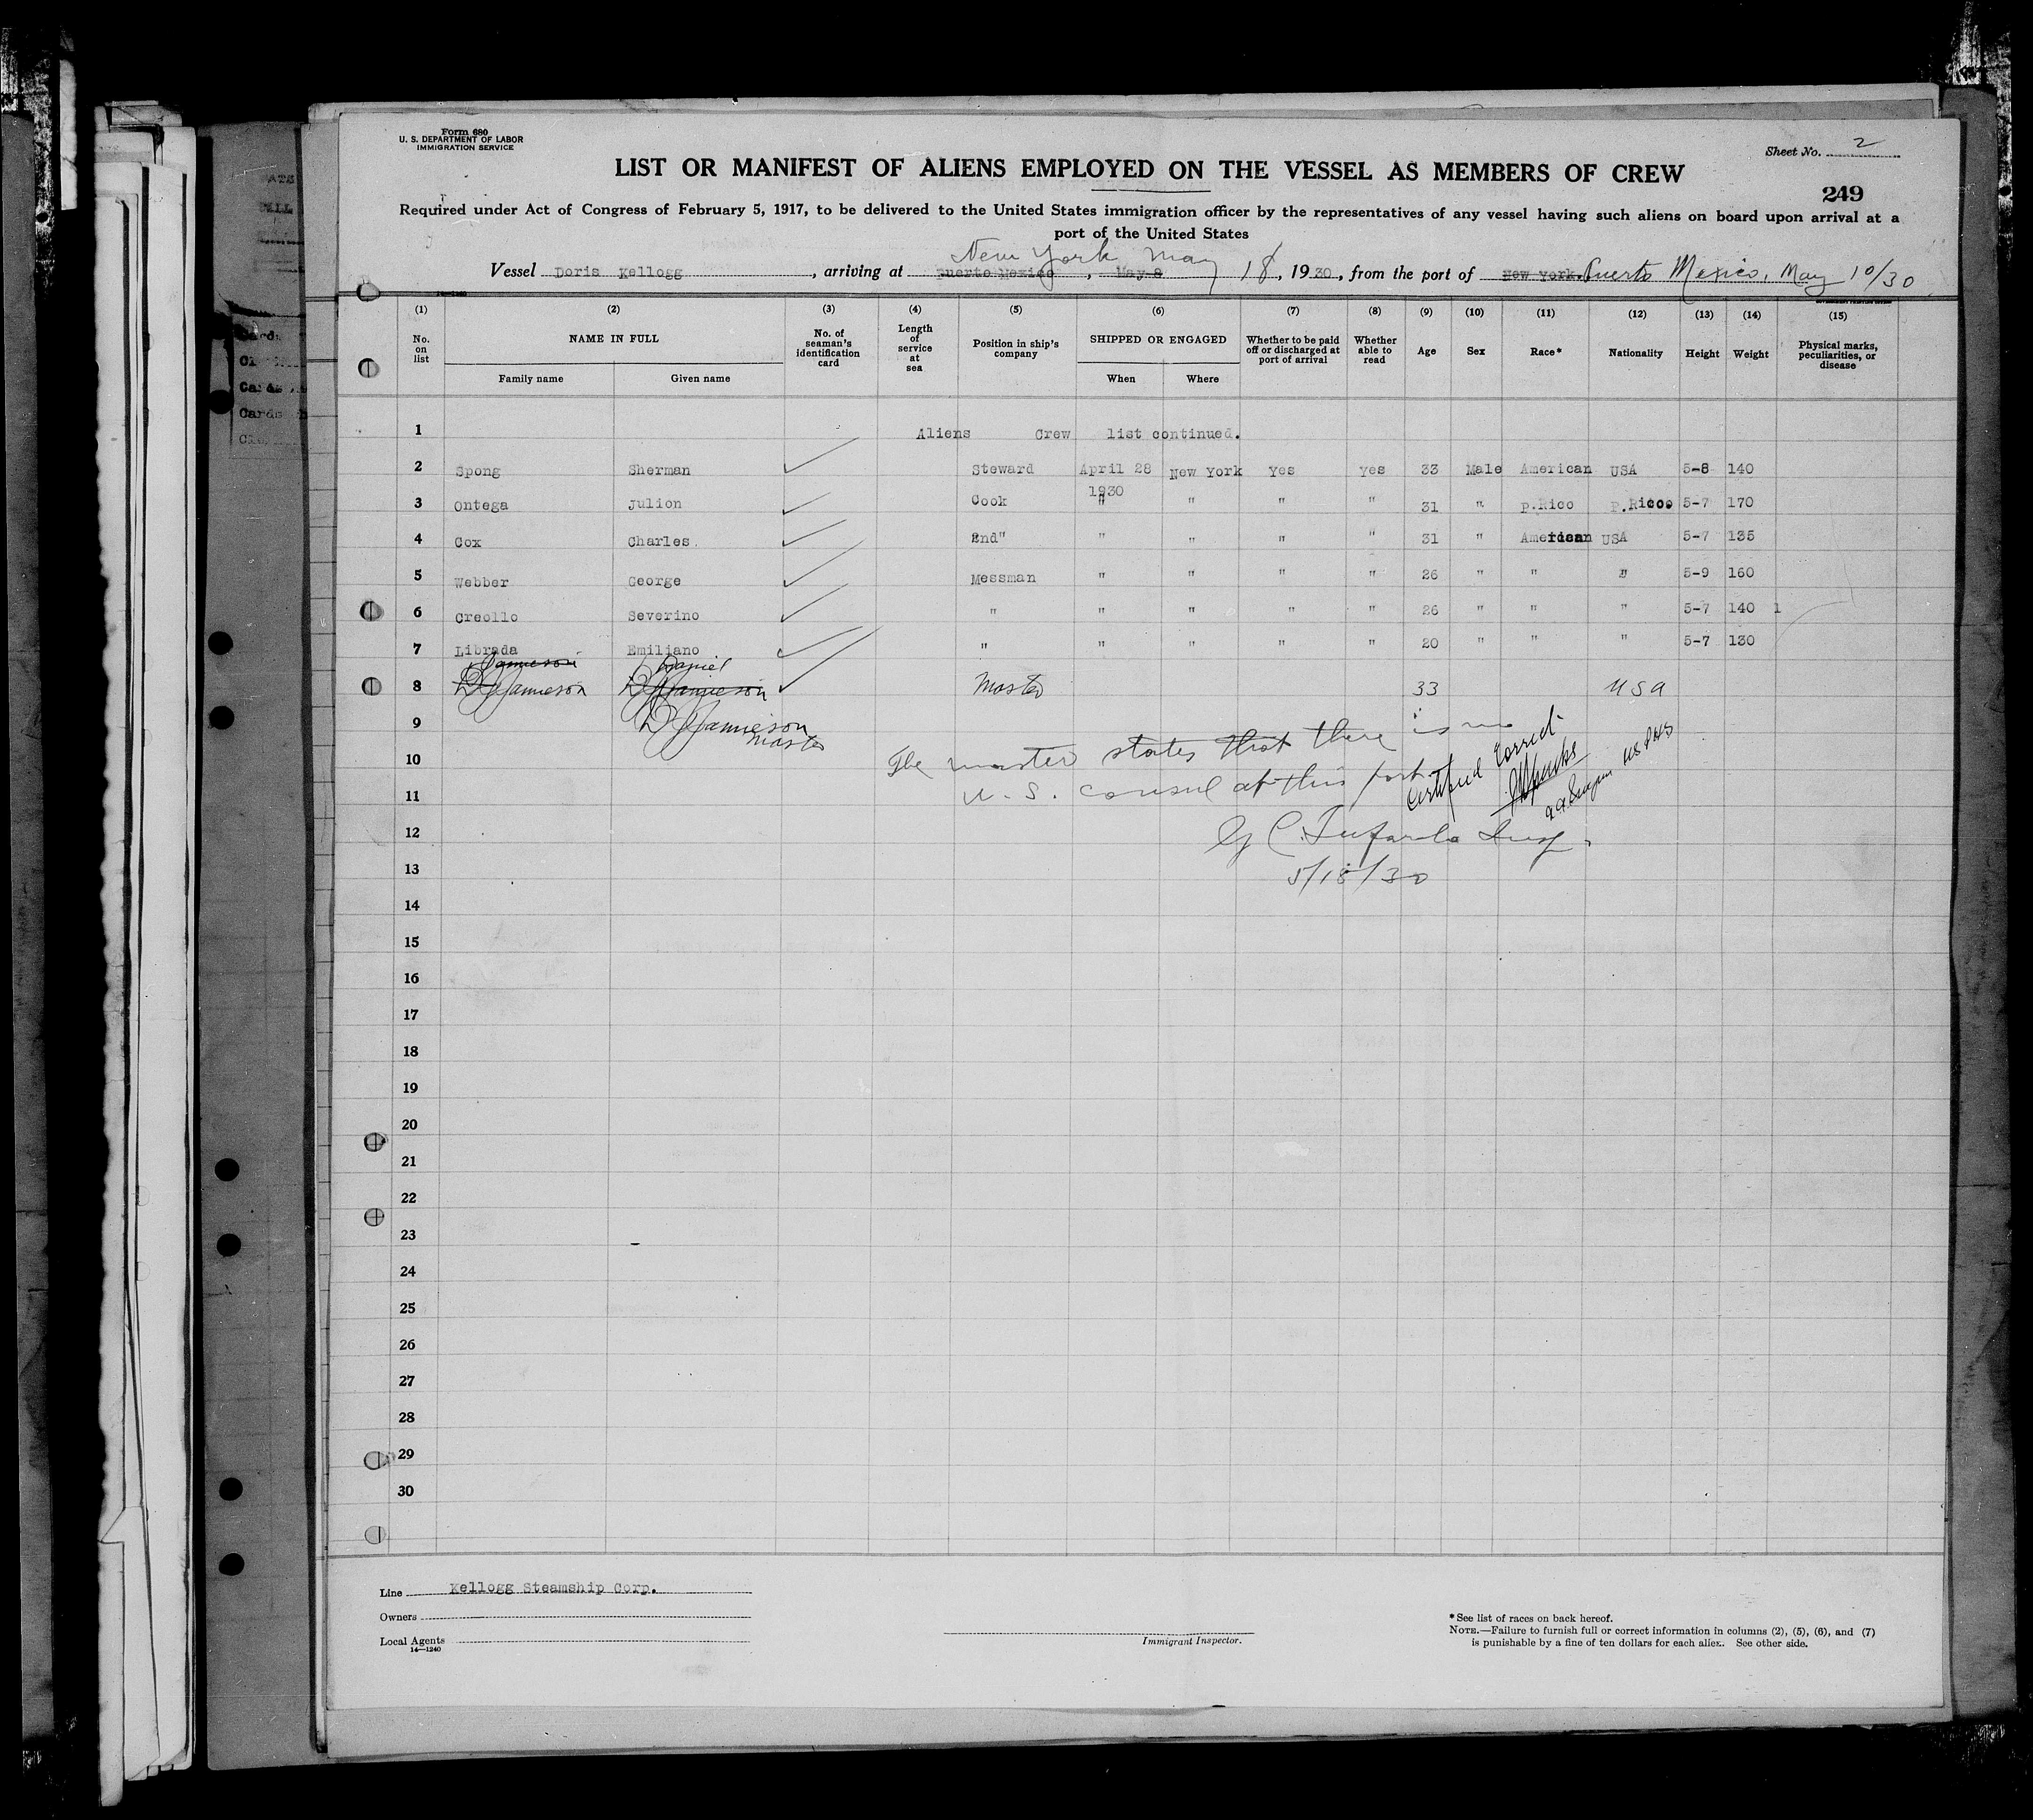 Form 680
U. S. DEPARTMENT OF LABOR
IMMIGRATION SERVICE
Sheet No. 2
LIST OR MANIFEST OF ALIENS EMPLOYED ON THE VESSEL AS MEMBERS OF CREW
249
Required under Act of Congress of February 5, 1917, to be delivered to the United States immigration officer by the representatives of any vessel having such aliens on board upon arrival at a
port of the United States
New York May 18
Vessel Doris Kellogg, arriving at Puerto Mexico, May 8, 1930, from the port of New York. Puerto Mexico, May 10/30
(1) (2) (3) (4) (5) (6) (7) (8) (9) (10) (11) (12) (13) (14) (15)
No. on list
NAME IN FULL
Family name Given name
No. of seaman's identification card
Length of service at sea
Position in ship's company
SHIPPED OR ENGAGED
When Where
Whether to be paid off or discharged at port of arrival
Whether able to read
Age
Sex
Race*
Nationality
Height
Weight
Physical marks, peculiarities, or disease
1 Aliens Crew list continued.
2 Spong Sherman Steward April 28 New York Yes Yes 33 Male American USA 5-8 140
1930
3 Ontega Julion Cook " " " " 31 " p.Rico p.Rico 5-7 170
4 Cox Charles 2nd" " " " " 31 " American USA 5-7 135
5 Webber George Messman " " " " 26 " " " 5-9 160
6 Creollo Severino " " " " " 26 " " " 5-7 140 1
7 Librada Emiliano " " " " " 20 " " " 5-7 130
Jamieson Daniel
8 D Jamieson D Jamieson Master 33 USA
9 D Jamieson
Master
10 The master states that there is no
11 U. S. consul at this port.
Certified Correct
12
13 5/18/30
14
15
16
17
18
19
20
21
22
23
24
25
26
27
28
29
30
Line Kellogg Steamship Corp.
Owners
Local Agents
14—1240
Immigrant Inspector.
*See list of races on back hereof.
NOTE.—Failure to furnish full or correct information in columns (2), (5), (6), and (7)
is punishable by a fine of ten dollars for each alien. See other side.